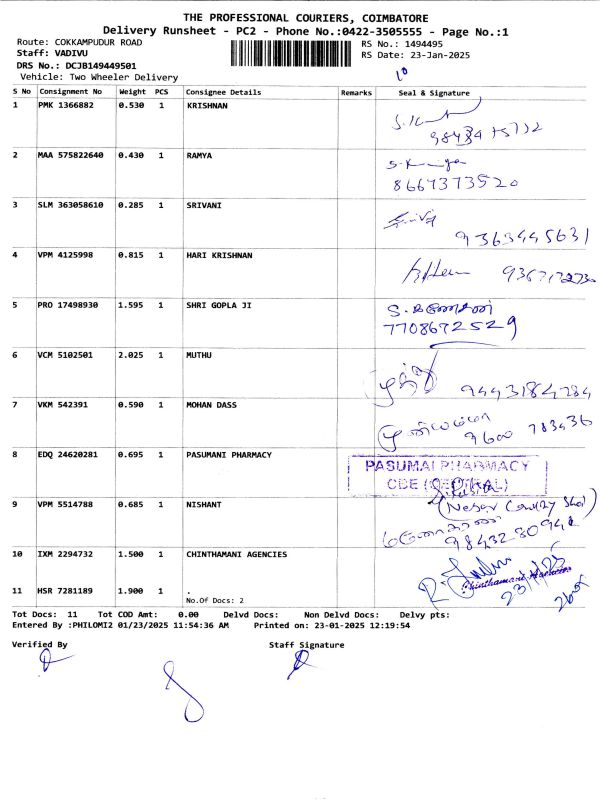 THE PROFESSIONAL COURIERS, COIMBATORE
Delivery Runsheet - PC2 - Phone No.:0422-3505555 - Page No.:1
Route: COKKAMPUDUR ROAD RS No.: 1494495
Staff: VADIVU RS Date: 23-Jan-2025
DRS No.: DCJB149449501
Vehicle: Two Wheeler Delivery 10
S No Consignment No Weight PCS Consignee Details Remarks Seal & Signature
1 PMK 1366882 0.530 1 KRISHNAN
2 MAA 575822640 0.430 1 RAMYA
8667373520
3 SLM 363058610 0.285 1 SRIVANI
9363445631
4 VPM 4125998 0.815 1 HARI KRISHNAN
5 PRO 17498930 1.595 1 SHRI GOPLA JI
7708672529
6 VCM 5102501 2.025 1 MUTHU
முத்து 9443184284
7 VKM 542391 0.590 1 MOHAN DASS
9600 783436
8 EDQ 24620281 0.695 1 PASUMANI PHARMACY
PASUMAI PHARMACY
9 VPM 5514788 0.685 1 NISHANT
10 IXM 2294732 1.500 1 CHINTHAMANI AGENCIES
Chinthamani Agencies
23/1/25
11 HSR 7281189 1.900 1 .
No.Of Docs: 2
Tot Docs: 11 Tot COD Amt: 0.00 Delvd Docs: Non Delvd Docs: Delvy pts:
Entered By :PHILOMI2 01/23/2025 11:54:36 AM Printed on: 23-01-2025 12:19:54
Verified By Staff Signature